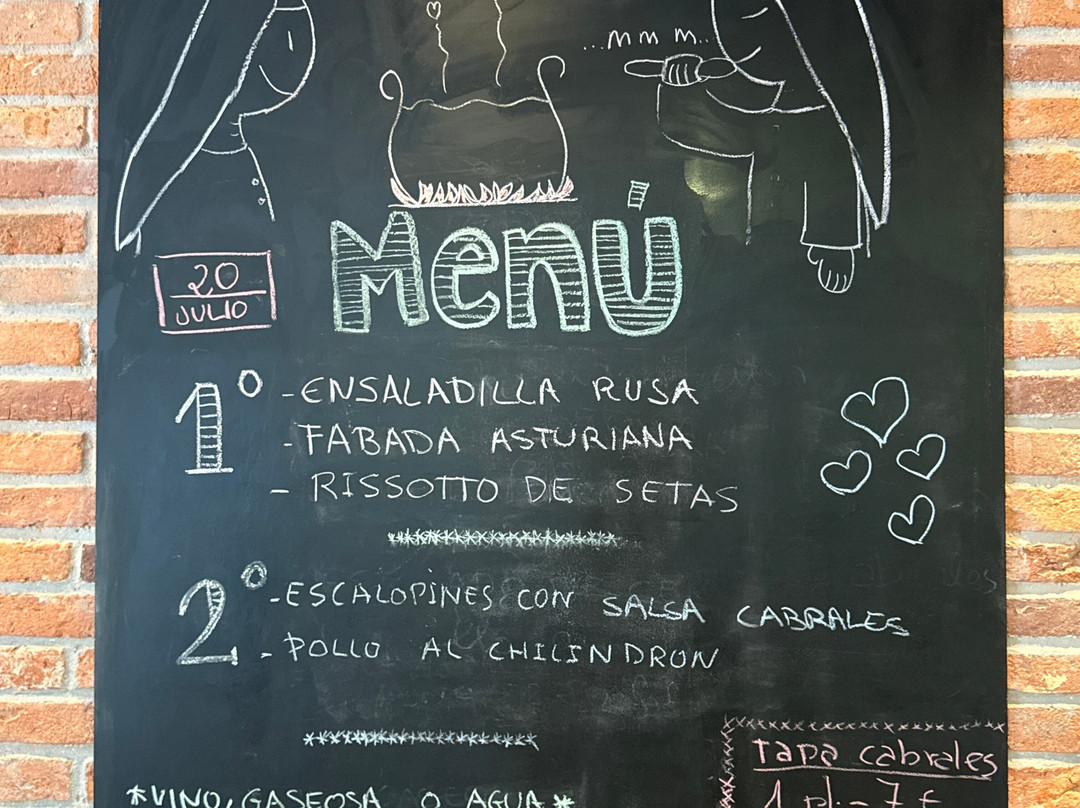 ...mmm..
Menú
20
JULIO
1º
-ENSALADILLA RUSA
-FABADA ASTURIANA
- RISSOTTO DE SETAS
2º
-ESCALOPINES CON SALSA CABRALES
- POLLO AL CHILINDRON
*VINO, GASEOSA O AGUA*
Tapa cabrales